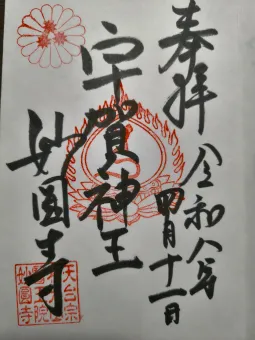 奉拝
令和八年
四月十一日
宇賀神王
妙圓寺
天台宗
妙圓寺